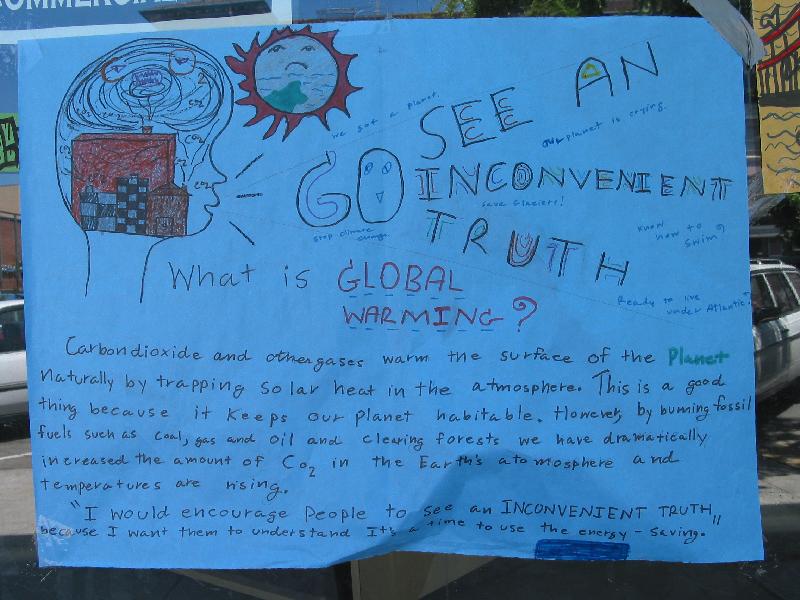 COMMERCIAL
CO2
we got a planet.
SEE AN
our planet is crying.
GO INCONVENIENT
save Glaciers!
stop climate change.
TRUTH
know how to swim?
Ready to live under Atlantic?
What is GLOBAL
WARMING?
Carbondioxide and othergases warm the surface of the Planet
naturally by trapping solar heat in the atmosphere. This is a good
thing because it keeps our planet habitable. However, by burning fossil
fuels such as coal, gas and oil and clearing forests we have dramatically
increased the amount of CO2 in the Earth's atomosphere and
temperatures are rising.
"I would encourage people to see an INCONVENIENT TRUTH,,
because I want them to understand It's a time to use the energy - saving.